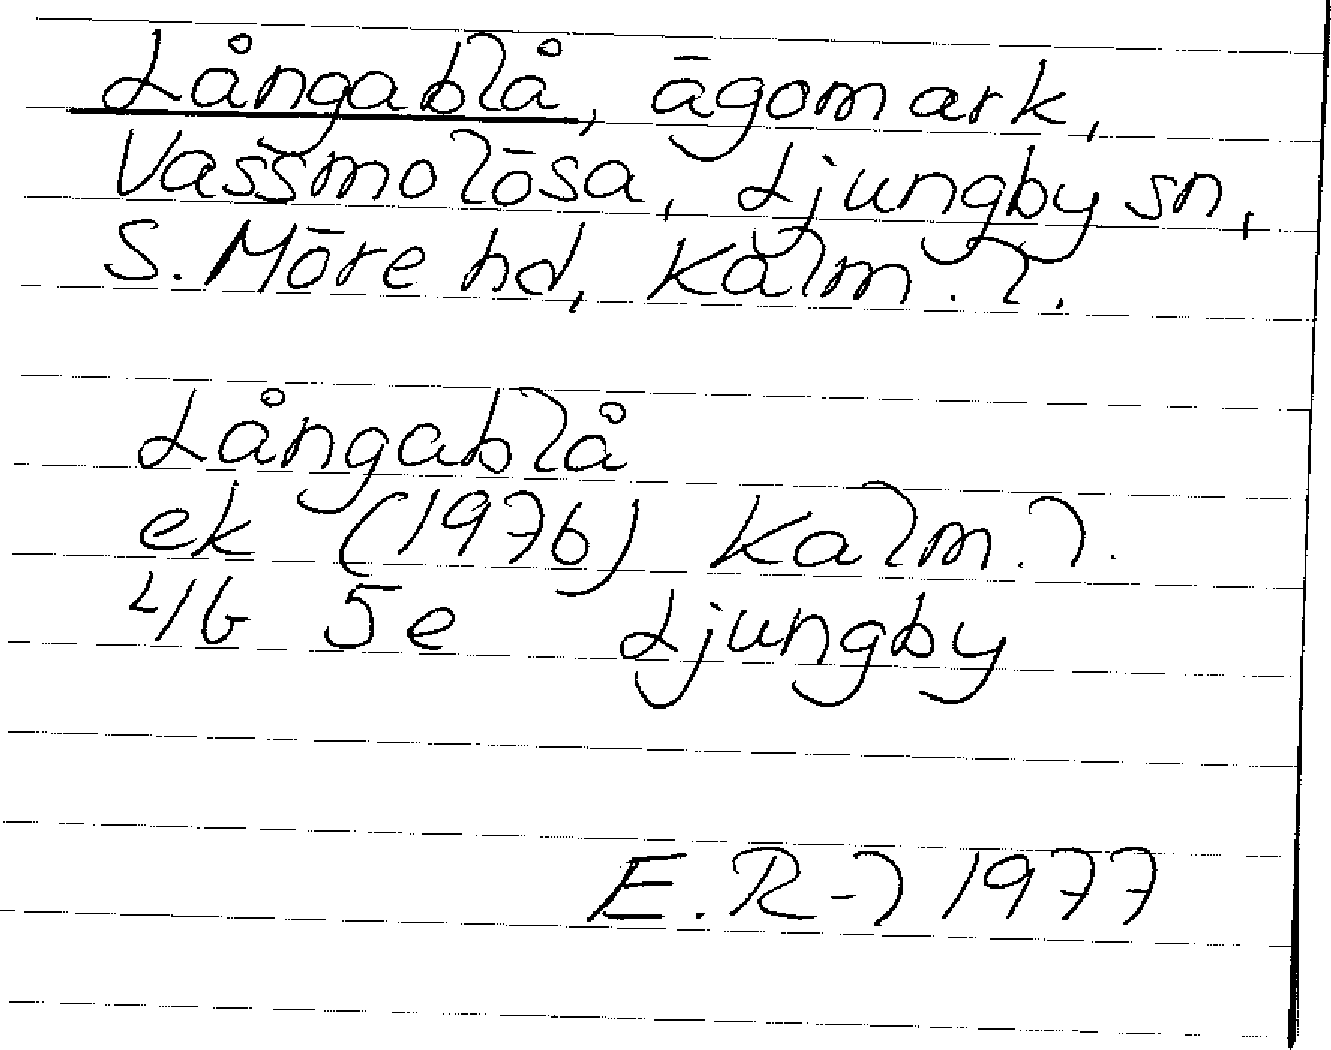 Långablå, ägomark,
Vassmolösa, Ljungby sn,
S. Möre hd, Kalm. l.
Långablå
ek (1976) Kalm. l.
4G 5e Ljungby
E. R-l 1977